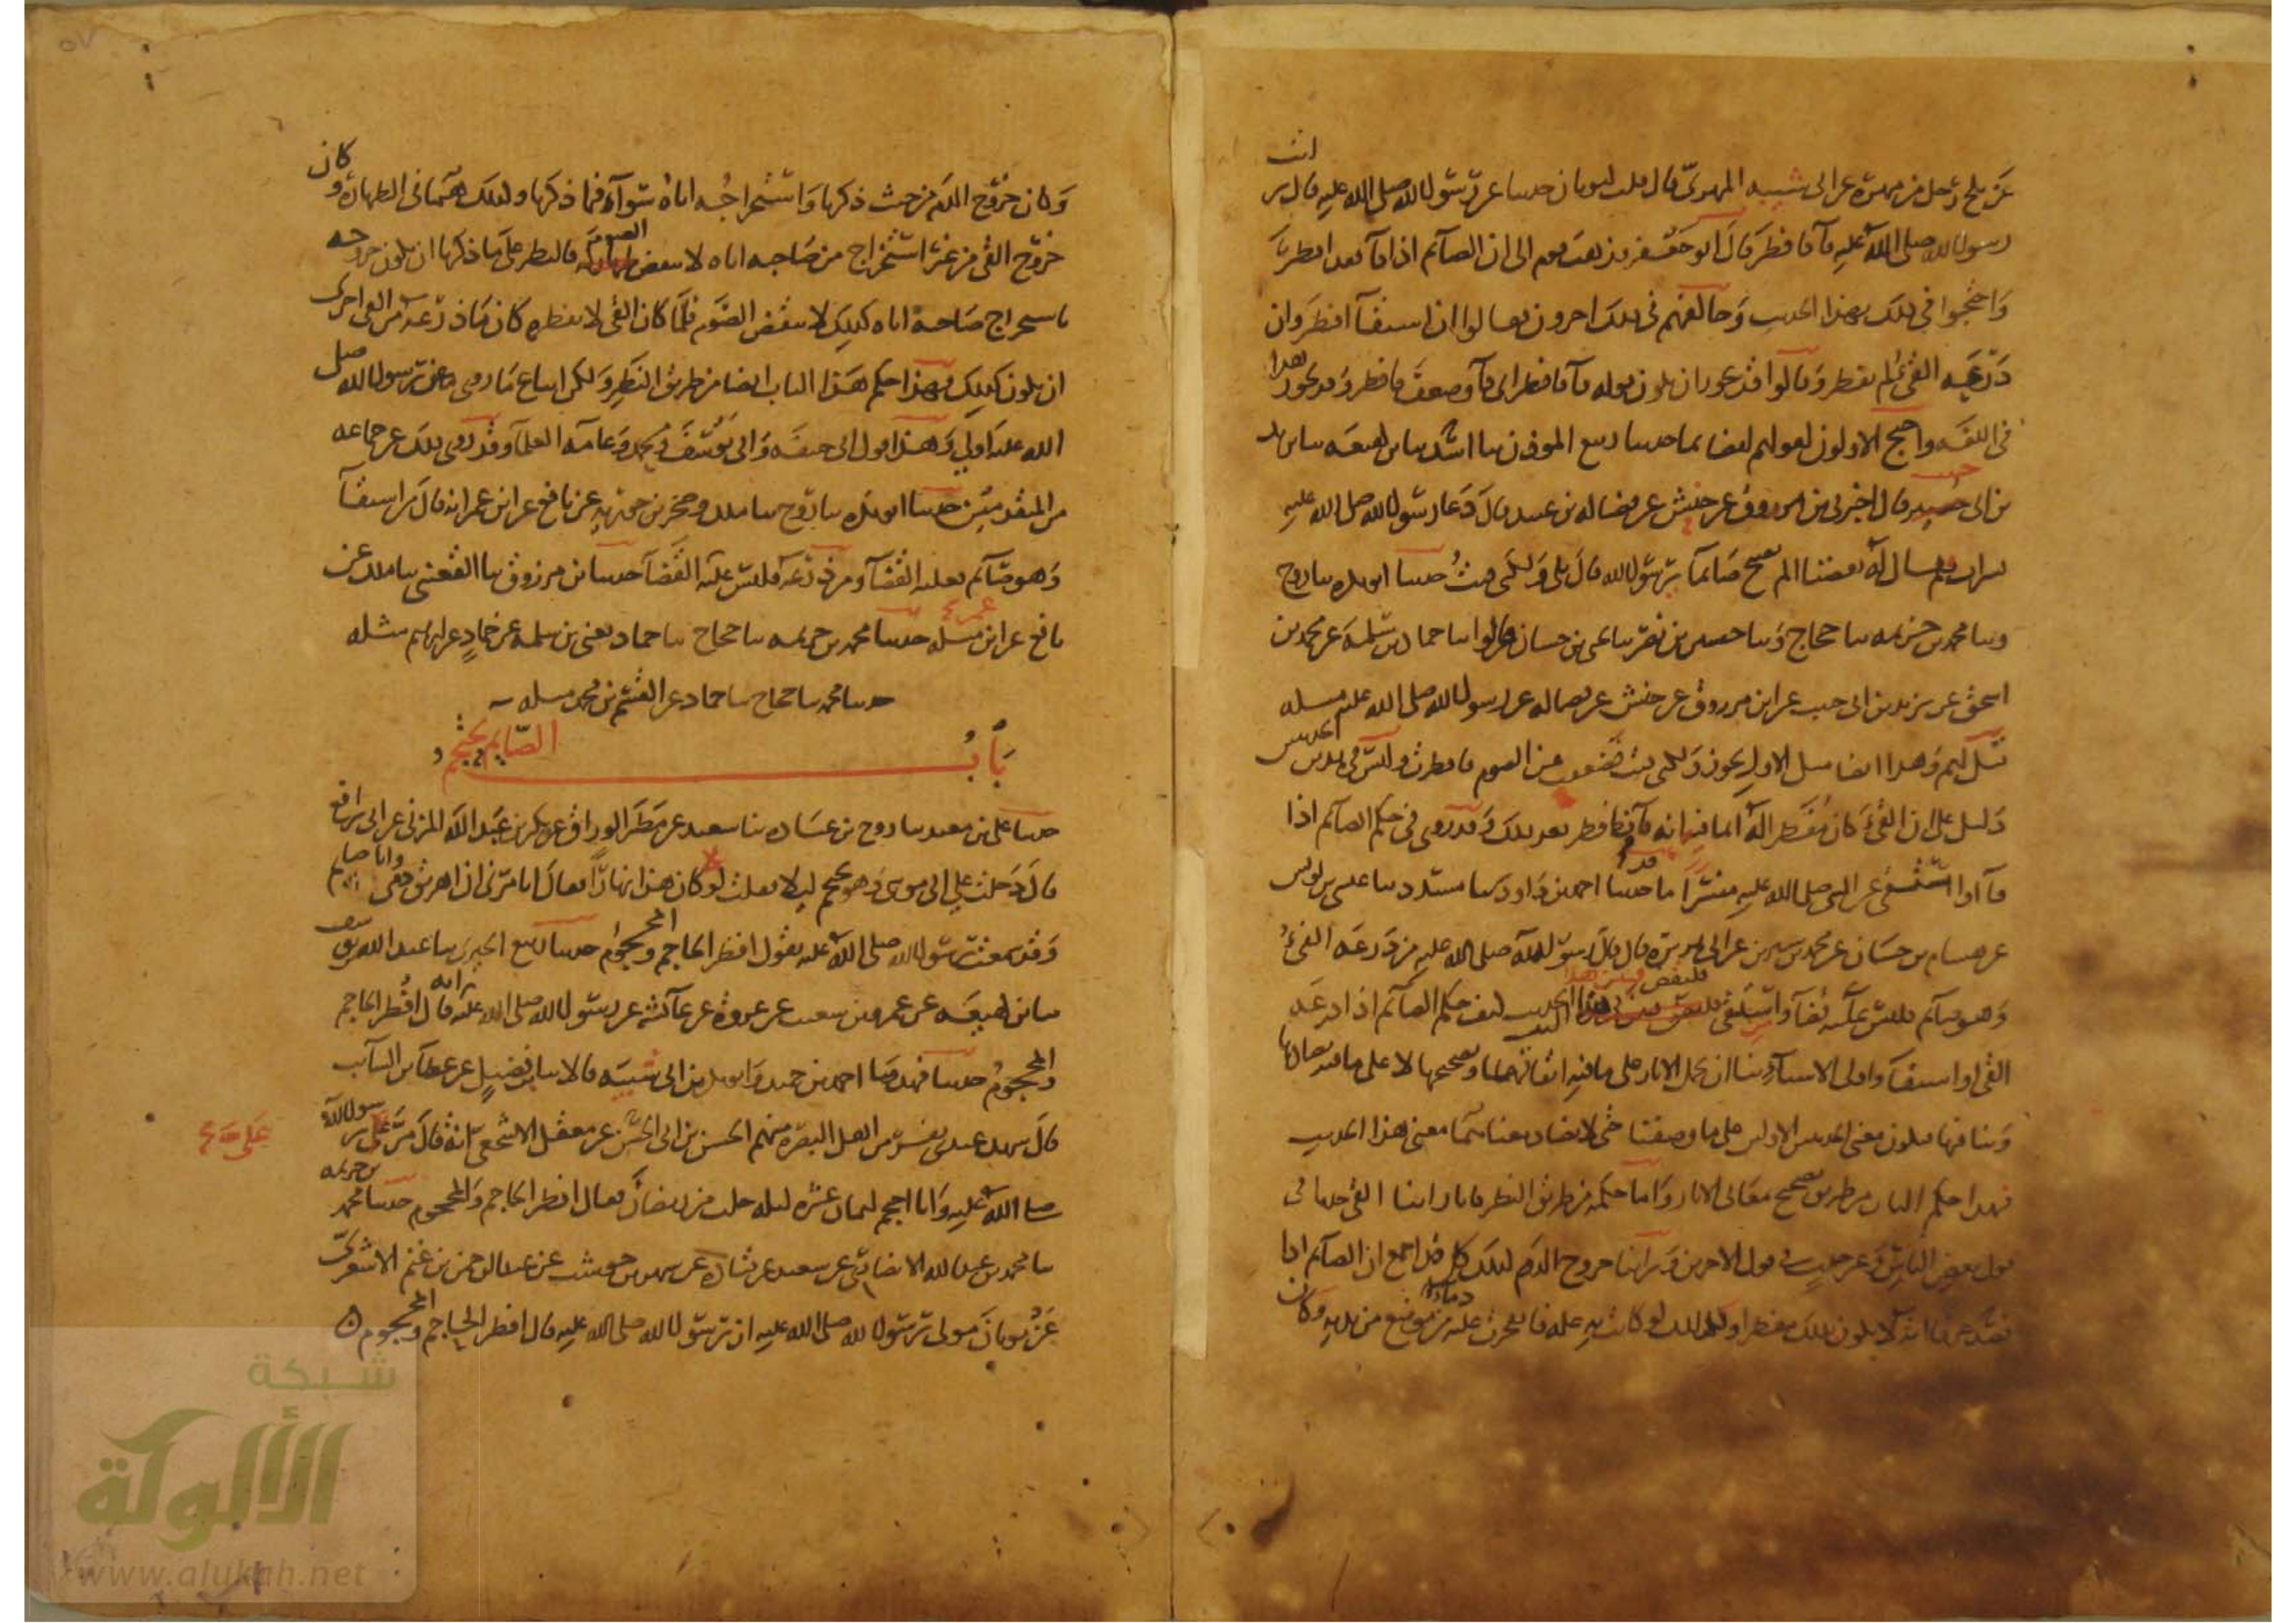 عن بلج رجل من مهرة عن ابى شيبه المهرىّ قال قلت لثوبان حدثنا عن رسول الله صلى الله عليه قال رايت
رسول الله صلى الله عليه قآ فافطر قال ابو جعفر فذهب قوم الى ان الصآئم اذا قآ فقد افطر
واحتجوا فى ذلك بهذا الحديث وخالفهم فى ذلك اخرون فقالوا ان استقآ افطر وان
ذرعه القئ لم يفطر وقالوا قد يجوز ان يكون قوله قآ فافطر اى قآ وضعف فافطر وقد يجوز هذا
فى اللغه واحتج الاولون لقولهم ايضا بما حدثنا ربيع الموذن ثنا اسد ثنا بن لهيعه ثنا يزيد
بن ابى حبيب قال اخبرنى بن مرزوق عن حنش عن فضاله بن عبيد قال دعا رسول الله صلى الله عليه
بشراب فقال له بعضنا الم تصبح صائما يرسول الله قال بلى ولكنى قئت حدثنا ابو بكره ثنا روح
وثنا محمد بن خزيمه ثنا حجاج وثنا حسين بن نصر ثنا يحيى بن حسان قالوا ثنا حماد بن سلمة عن محمد بن
اسحق عن يزيد بن ابى حبيب عن ابن مرزوق عن حنش عن فضاله عن رسول الله صلى الله عليه مثله
قيل لهم وهذا ايضا مثل الاول يجوز ولكنى قئت فضعفت عن الصوم فافطرت وليس فى هذين الحديثين
دليل على ان القئ كان مفطرا له انما فيه انه قآ فافطر بعد ذلك وقد روى فى حكم الصآئم اذا
قآ او استقى عن النبى صلى الله عليه مفسّرا ما قد حدثنا احمد بن داود ثنا مسدد ثنا عيسى بن يونس
عن هشام بن حسان عن محمد بن سيرين عن ابى هريرة قال قال رسول الله صلى الله عليه من ذرعه القئ
وهو صآئم فليس عليه قضآ وان استقى فليقض فبين هذا الحديث كيف حكم الصآئم اذا ذرعه
القى او استقآ واولى الاشيآء بنا ان نحمل الاثار على ما فيه اتفاقهما وتصحيحها لا على ما فيه تضادها
وتنافيها فيكون معنى الحديثين الاولين على ما وصفنا حتى لا يضاد معناهما معنى هذا الحديث
فهذا حكم الباب من طريق تصحيح معانى الاثار واما حكمه من طريق النظر فانا راينا القئ حدثا فى
قول بعض الناس وغير حدث فى قول الاخرين وراينا خروج الدم كذلك وكل قد اجمع ان الصآئم اذا
فصد عرقا انه لا يكون بذلك مفطرا وكذلك لو كانت به عله فانفجرت عليه دما من موضع من بدنه وكان
وكان خروج الدم من حيث ذكرنا واستخراجُه اياه سوآء فيما ذكرنا وكذلك هما فى الطهارة وكان
خروج القئ من غير استخراج من صاحبه اياه لا ينقض الصوم فالنظر على ما ذكرنا ان يكون خروجه
باستخراج صاحبه اياه كذلك لا ينقض الصوم فلما كان القئ لا يفطره كان ما ذرعه من القئ احرى
ان يكون كذلك فهذا حكم هذا الباب ايضا من طريق النظر ولكن اتباع ما روى عن رسول الله صلى
الله عليه اولى وهذا قول ابى حنيفه وابى يوسف ومحمد وعامه العلمآ وقد روى ذلك عن جماعه
من المتقدمين حدثنا ابو بكره ثنا روح ثنا ملك وصخر بن جويريه عن نافع عن ابن عمر انه قال من استقآ
وهو صآئم فعليه القضآ ومن ذرعه فليس عليه القضآ حدثنا بن مرزوق ثنا القعنبى ثنا ملك عن
نافع عن ابن عمر مثله حدثنا محمد بن خزيمه ثنا حجاج ثنا حماد يعنى بن سلمه عن حماد عن ابرهيم مثله
حدثنا محمد ثنا حجاج ثنا حماد عن القسم بن محمد مثله
باب الصّايم يحتجم
حدثنا على بن معبد ثنا روح بن عباده ثنا سعيد عن مطر الوراق عن بكر بن عبد الله المزنى عن ابى رافع
قال دخلت على ابى موسى وهو يحتجم ليلا فقلت لو كان هذا نهارًا فقال اتامرنى ان اهريق دمى وانا صايم
وقد سمعت رسول الله صلى الله عليه يقول افطر الحاجم والمحجوم حدثنا ربيع الجيزى ثنا عبد الله بن يوسف
ثنا بن لهيعه عن عمرو بن شعيب عن عروة عن عآئشة عن رسول الله صلى الله عليه انه قال افطر الحاجم
والمحجوم حدثنا فهد ثنا احمد بن حميد وابو بكر بن ابى شيبه قالا ثنا بن فضيل عن عطآ بن السآئب
قال شهد عندى نفر من اهل البصرة منهم الحسن بن ابى الحسن عن معقل الاشجعى انه قال مرّ علىّ رسول الله
صلى الله عليه وانا احتجم لثمان عشره ليله خلت من رمضان فقال افطر الحاجم والمحجوم حدثنا محمد بن خزيمه
ثنا محمد بن عبد الله الانصارى عن سعيد عن قتادة عن شهر بن حوشب عن عبد الرحمن بن غنم الاشعرىّ
عن ثوبان مولى رسول الله صلى الله عليه ان رسول الله صلى الله عليه قال افطر الحاجم والمحجوم
شبكة
الألوكة
www.alukah.net